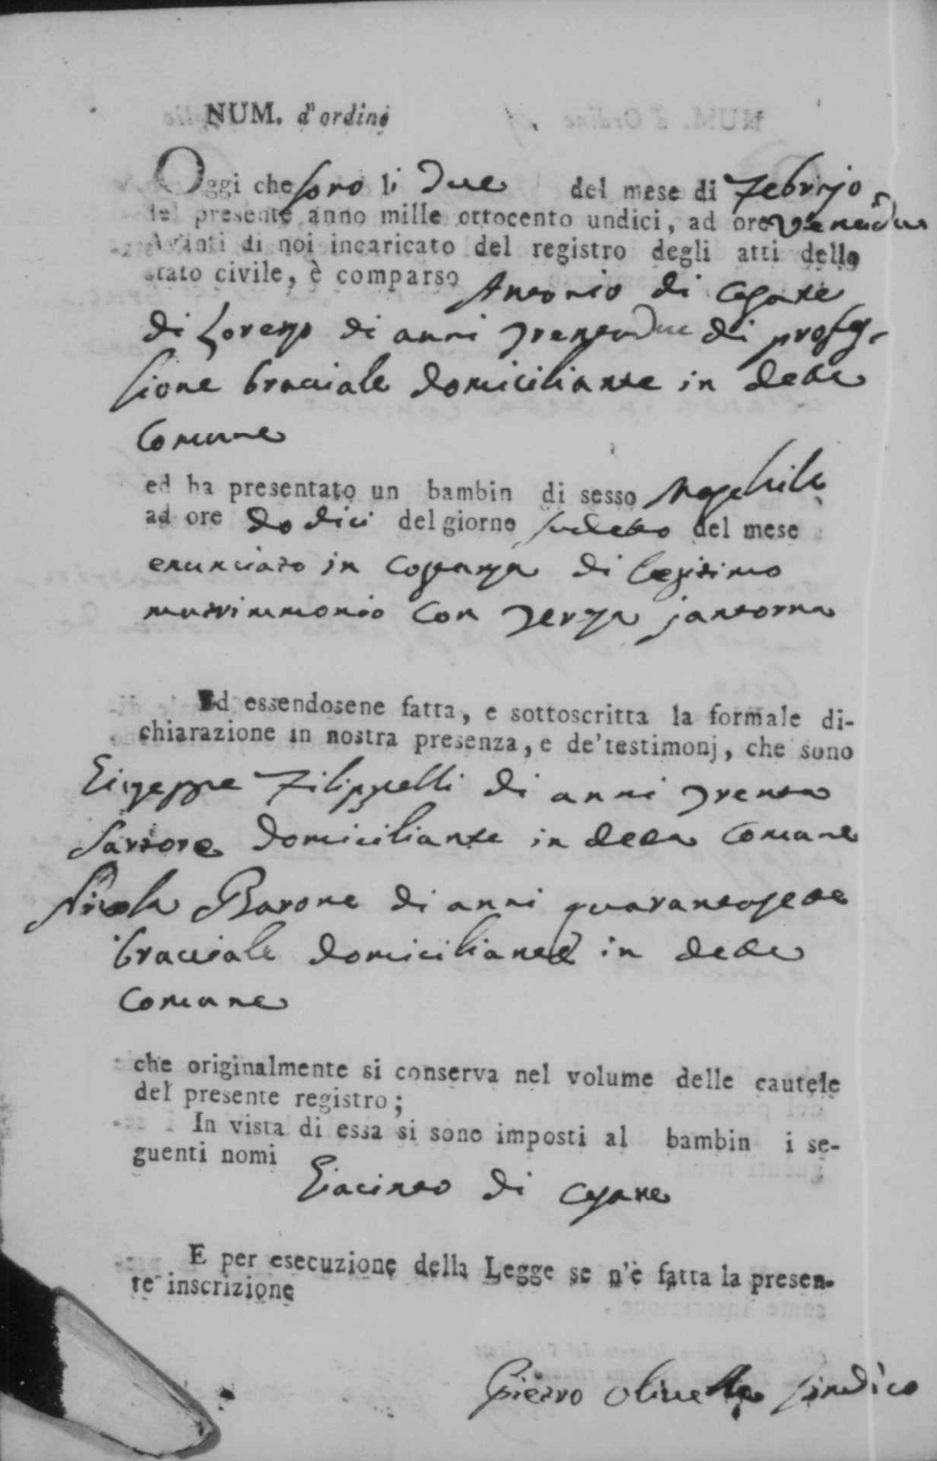 NUM. d'ordine
Oggi che sono li Due del mese di Febrajo
del presente anno mille ottocento undici, ad ore ventidue
Avanti di noi incaricato del registro degli atti dello
stato civile, è comparso Antonio di Cesare
di Lorenzo di anni Trentadue di profes-
sione bracciale domiciliante in detta
Comune
ed ha presentato un bambin di sesso Maschile
ad ore dodici del giorno sudetto del mese
enunciato in Costanza di legitimo
matrimmonio con Terza
Ed essendosene fatta, e sottoscritta la formale di-
chiarazione in nostra presenza, e de' testimonj, che sono
Giuseppe Filippelli di anni Trenta
Sartore domiciliante in detta Comune
Nicola Barone di anni quarantasette
bracciale domiciliante in detta
Comune
che originalmente si conserva nel volume delle cautele
del presente registro;
In vista di essa si sono imposti al bambin i se-
guenti nomi
Giacinto di Cesare
E per esecuzione della Legge se n'è fatta la presen-
te inscrizione
Pietro Sindico